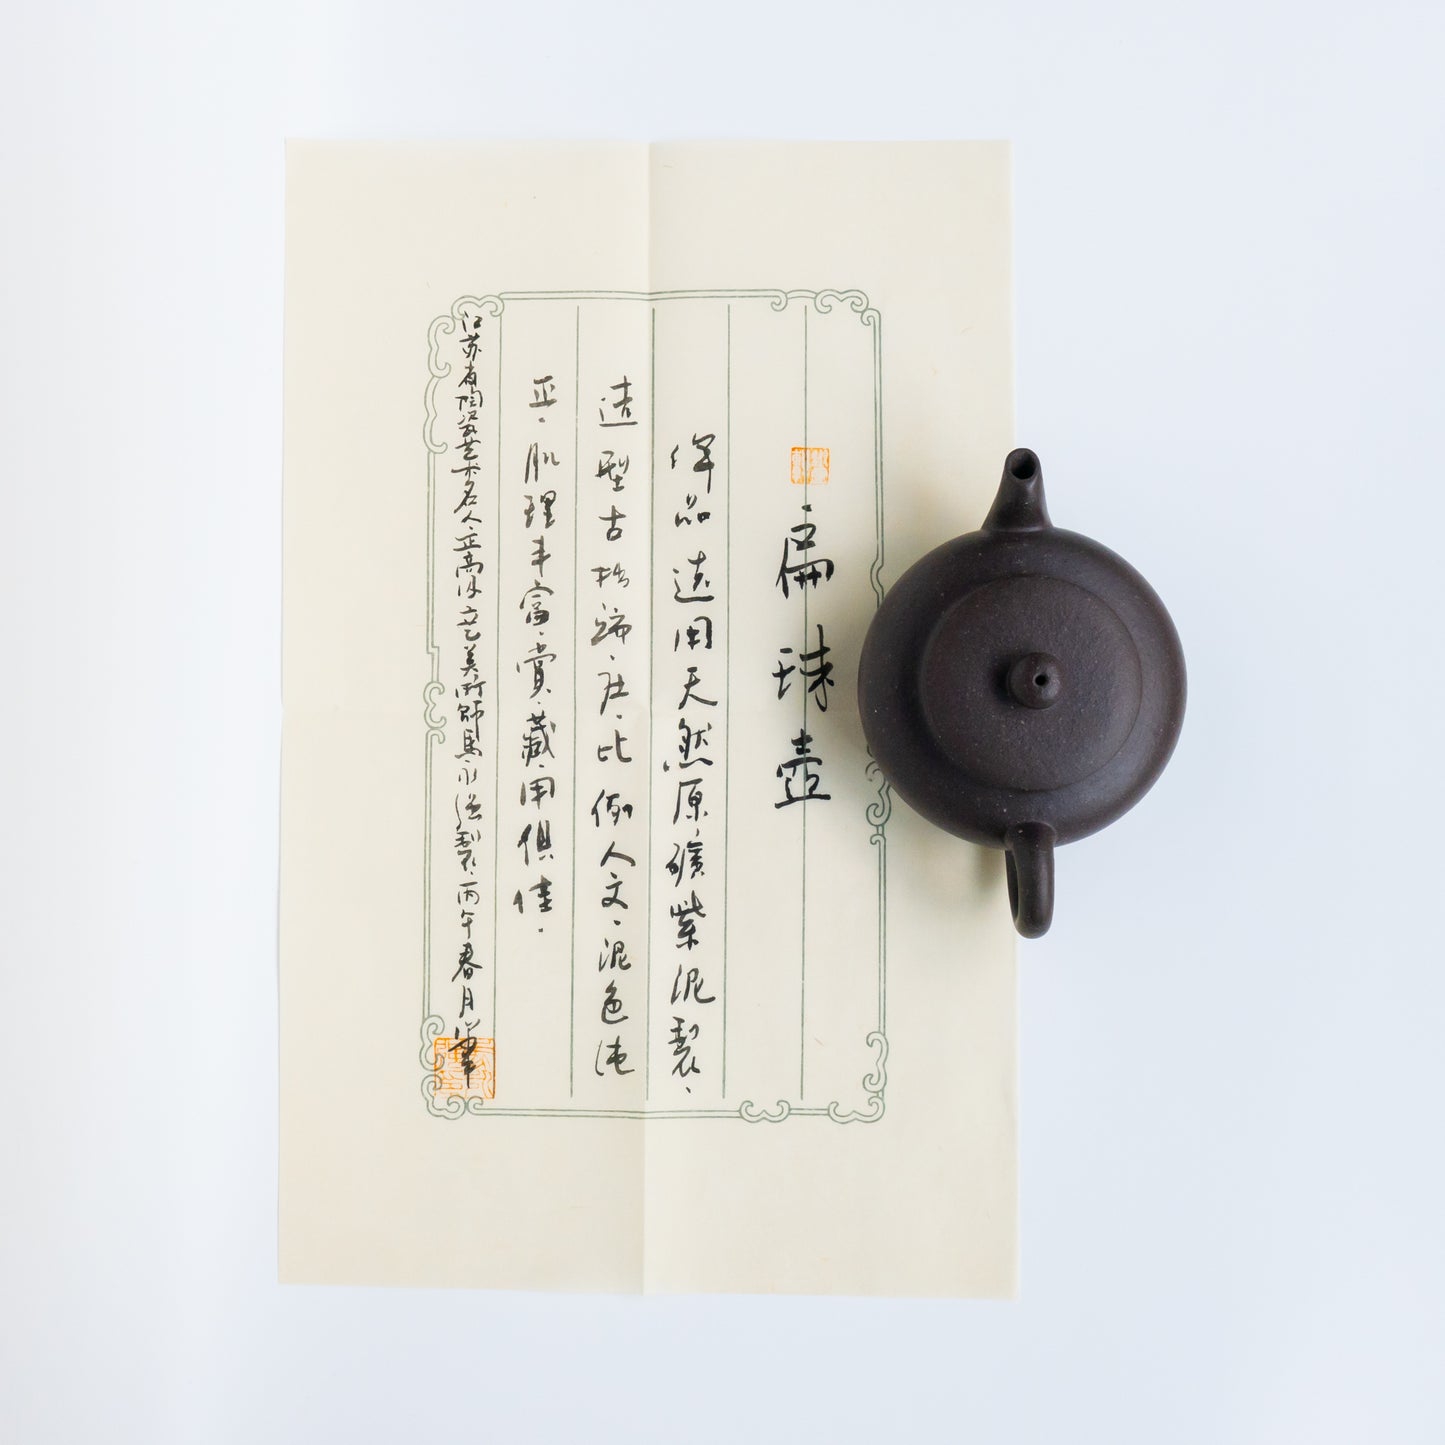 扁珠壺
佯品选用天然原礦紫泥製、
造型古拙端庄、比例人文、泥色纯
正、肌理丰富、賞、藏、用俱佳、
江苏省陶瓷艺术名人、正高级工艺美術師馬永强製、丙午春月